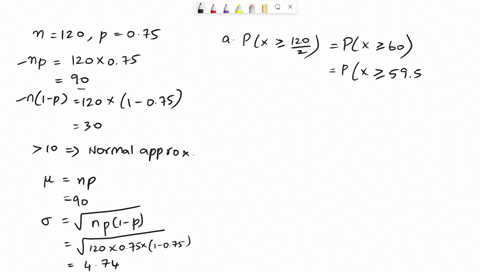 n = 120, p = 0.75
- np = 120 × 0.75
= 90
- n(1-p) = 120 × (1 - 0.75)
= 30
> 10 => Normal approx.
μ = np
= 90
σ = √np(1-p)
= √120 × 0.75 × (1-0.75)
= 4.74
a. P(x ≥ 120/2) = P(x ≥ 60)
= P(x ≥ 59.5